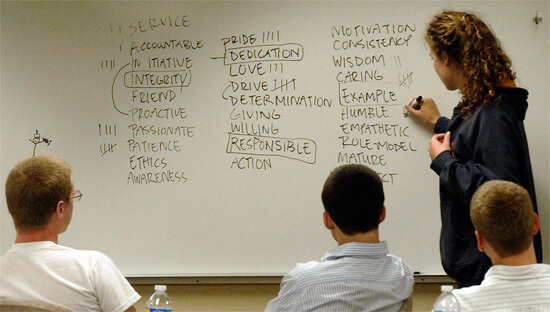 SERVICE
ACCOUNTABLE
INITIATIVE
INTEGRITY
FRIEND
PROACTIVE
PASSIONATE
PATIENCE
ETHICS
AWARENESS
PRIDE
DEDICATION
LOVE
DRIVE
DETERMINATION
GIVING
WILLING
RESPONSIBLE
ACTION
MOTIVATION
CONSISTENCY
WISDOM
CARING
EXAMPLE
HUMBLE
EMPATHETIC
ROLE-MODEL
MATURE